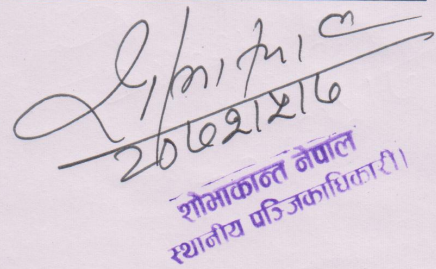 २०७२।५।७
शोभाकान्त नेपाल
स्थानीय पञ्जिकाधिकारी।